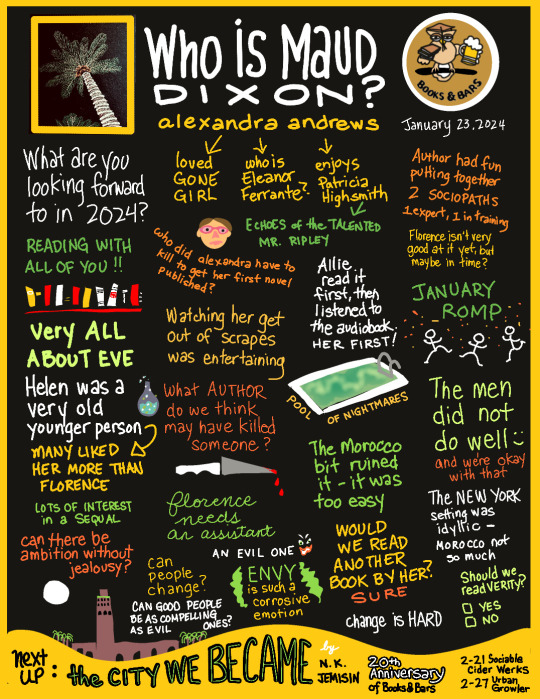 WHO IS MAUD
DIXON?
alexandra andrews
BOOKS & BARS
January 23, 2024
What are you
looking forward
to in 2024?
READING WITH
ALL OF YOU !!
loved
GONE
GIRL
who is
Eleanor
Ferrante?
enjoys
Patricia
Highsmith
ECHOES of the TALENTED
MR. RIPLEY
Author had fun
putting together
2 SOCIOPATHS
1 expert, 1 in training
Florence isn't very
good at it yet, but
maybe in time?
who did alexandra have to
kill to get her first novel
published?
Allie
read it
first, then
listened to
the audiobook
HER FIRST!
JANUARY
ROMP
very ALL
ABOUT EVE
Watching her get
out of scrapes
was entertaining
Helen was a
very old
younger person
MANY LIKED
HER MORE THAN
FLORENCE
What AUTHOR
do we think
may have killed
someone?
POOL OF NIGHTMARES
The men
did not
do well
and were okay
with that
LOTS OF INTEREST
in a SEQUAL
can there be
ambition without
jealousy?
florence
needs
an assistant
AN EVIL ONE
The Morocco
bit ruined
it - it was
too easy
The NEW YORK
setting was
idyllic -
MOROCCO not
so much
can
people
change?
CAN GOOD PEOPLE
BE AS COMPELLING
AS EVIL ONES?
ENVY
is such a
corrosive
emotion
WOULD
WE READ
ANOTHER
BOOK BY HER?
SURE
change is HARD
Should we
read VERITY?
YES
NO
next
up:
the CITY WE BECAME
by
N. K.
JEMISIN
20th
Anniversary
of Books & Bars
2-21 Sociable
Cider Werks
2-27 Urban
Growler